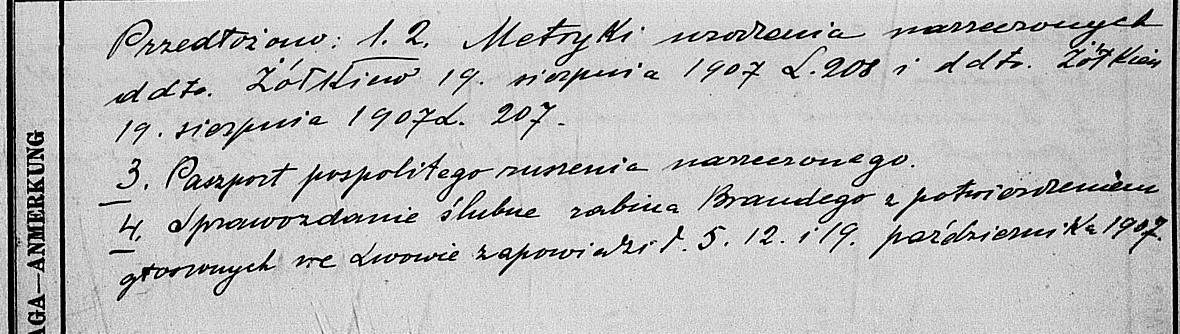 Przedłożono: 1. 2. Metryki urodzenia narzeczonych
ddto. Żółkiew 19. sierpnia 1907 L. 208 i ddto. Żółkiew
19. sierpnia 1907 L. 207.
3. Paszport pospolitego ruszenia narzeczonego.
4. Sprawozdanie ślubne rabina Braudego z potwierdzeniem
głoszonych we Lwowie zapowiedzi d. 5. 12. i 19. października 1907.
AGA—ANMERKUNG